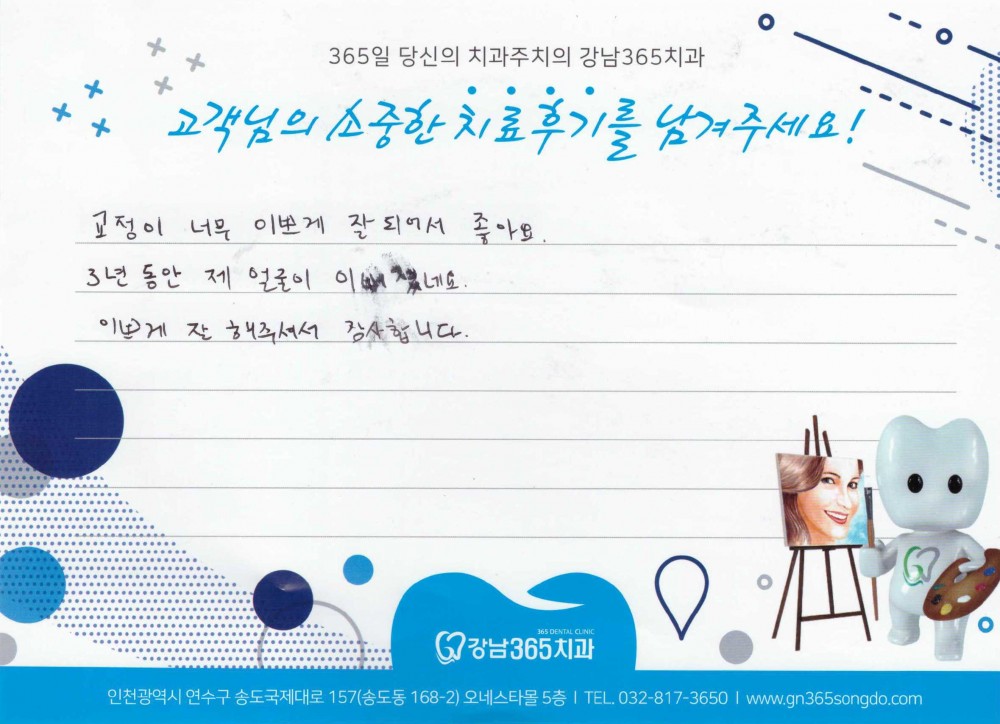 365일 당신의 치과주치의 강남365치과
고객님의 소중한 치료후기를 남겨주세요!
교정이 너무 이쁘게 잘 되어서 좋아요.
3년 동안 제 얼굴이
이쁘게 잘 해주셔서 감사합니다.
365 DENTAL CLINIC
강남365치과
인천광역시 연수구 송도국제대로 157(송도동 168-2) 오네스타몰 5층 | TEL. 032-817-3650 | www.gn365songdo.com